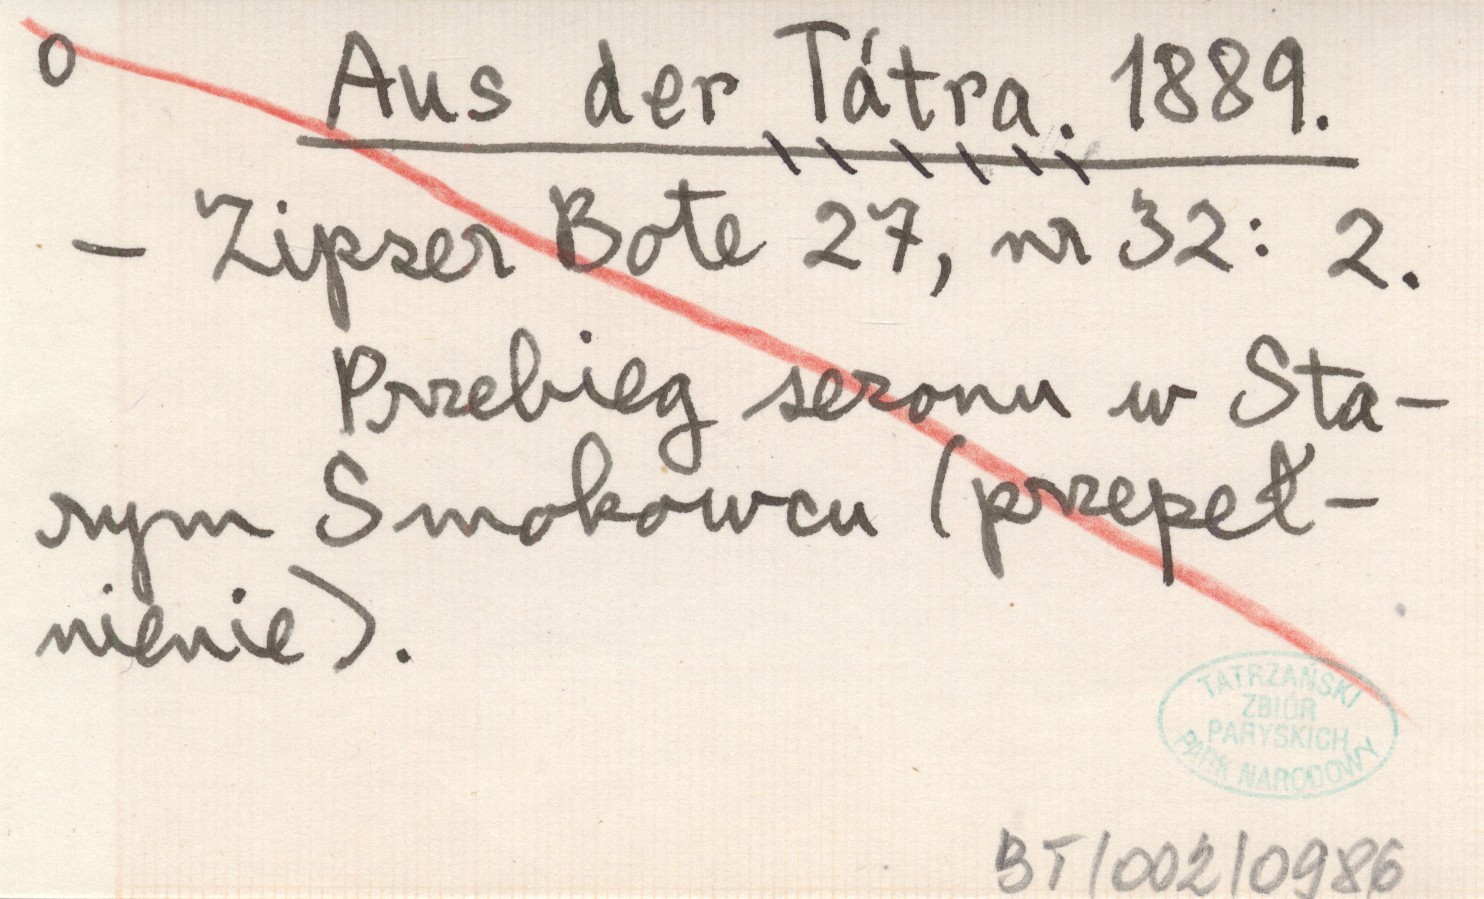 o Aus der Tátra. 1889.
– Zipser Bote 27, nr 32: 2.
Przebieg sezonu w Sta-
rym Smokowcu (przepeł-
nienie).
TATRZAŃSKI
ZBIÓR
PARYSKICH
PARK NARODOWY
BT/002/0986